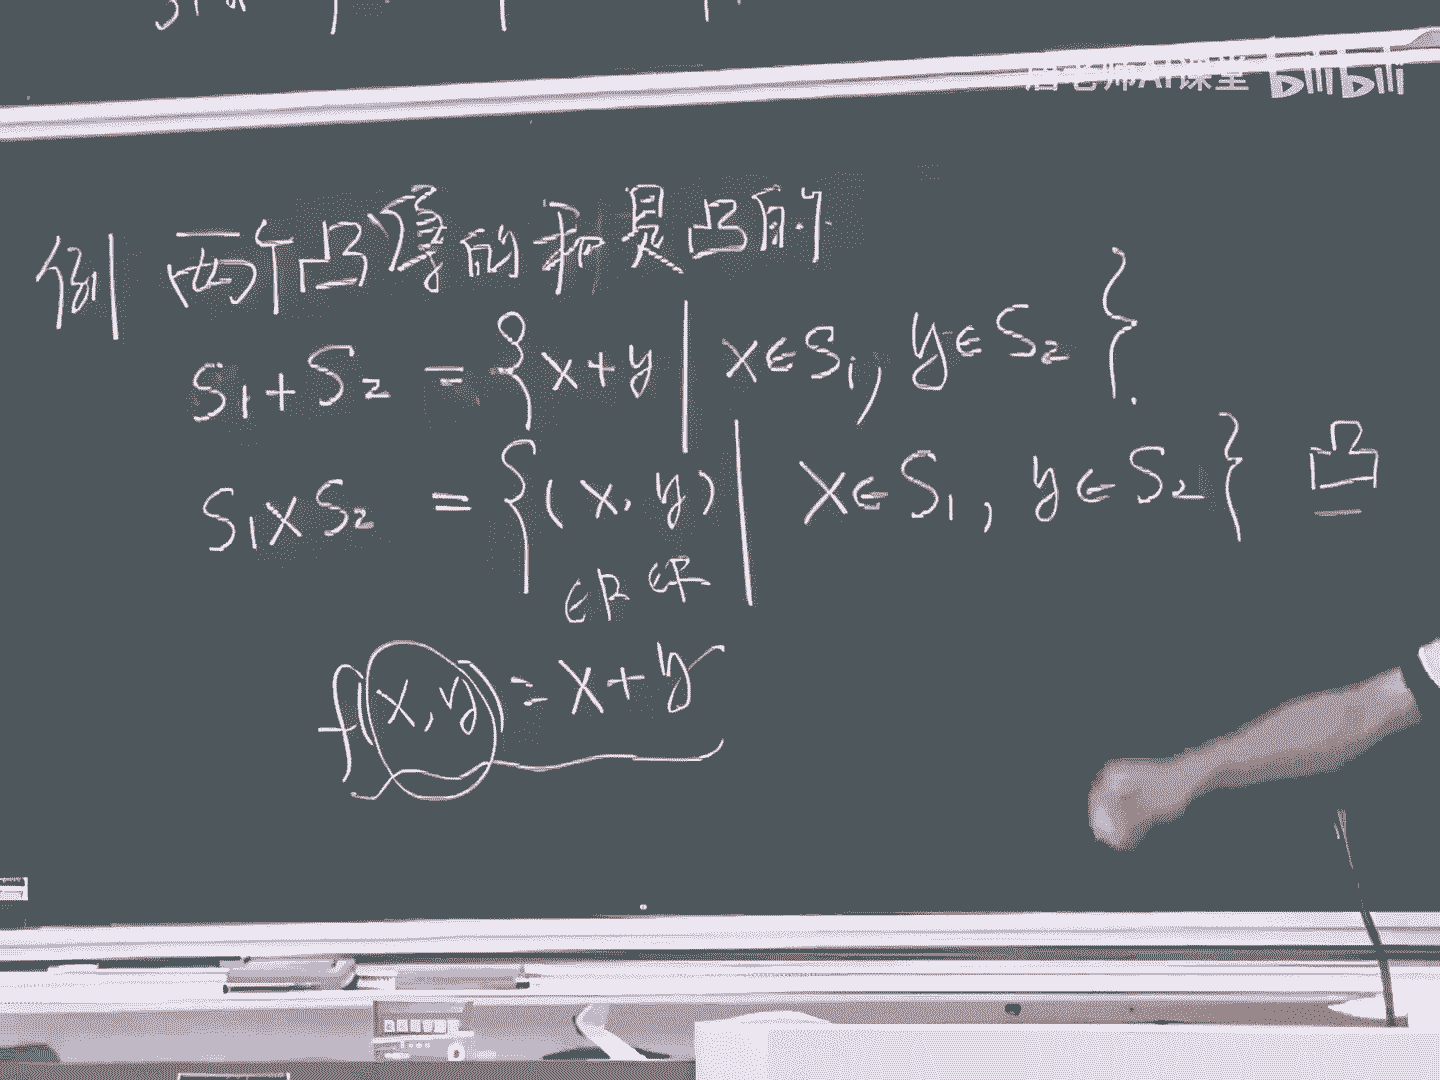 唐老师AI课堂 bilibili
例 两个凸集的和是凸的
S₁+S₂ = {x+y | x∈S₁, y∈S₂}.
S₁×S₂ = {(x, y) | x∈S₁, y∈S₂} 凸
∈R ∈R
f(x,y) = x+y